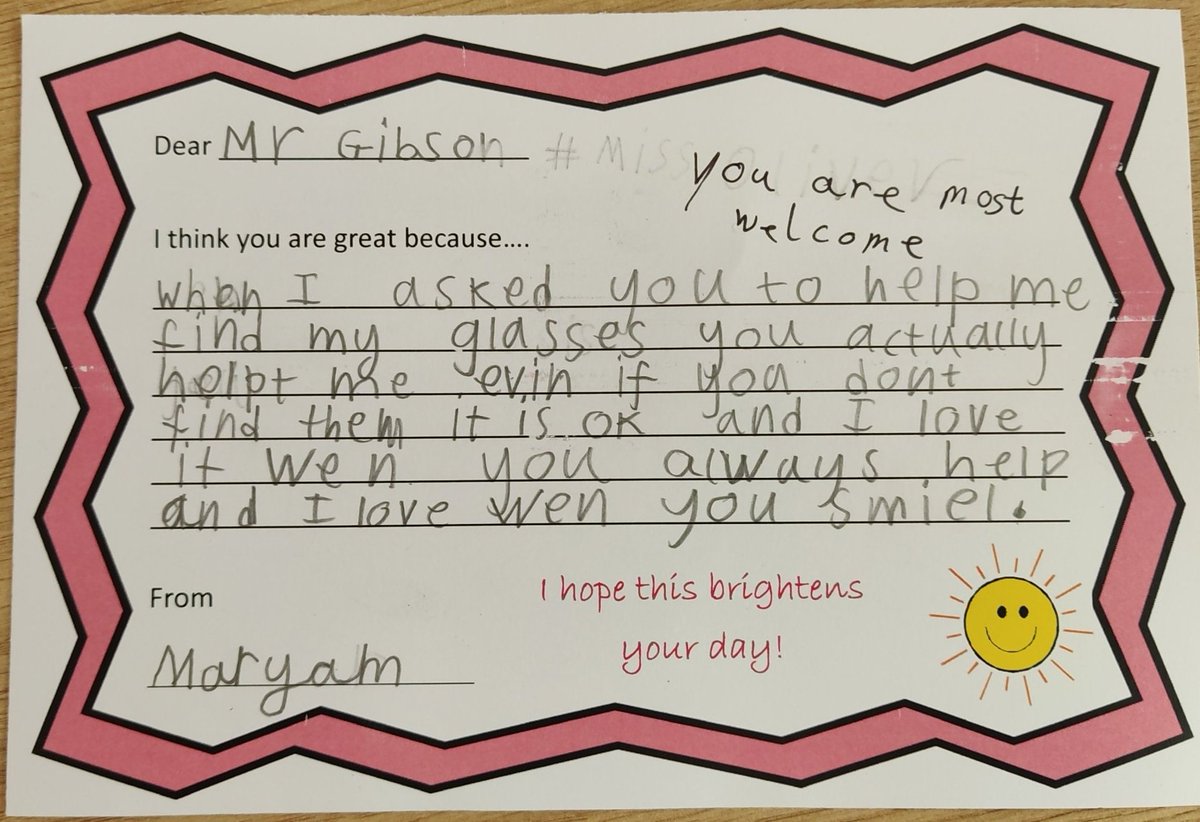 Dear Mr Gibson # Miss Oliver
you are most
welcome
I think you are great because....
when I asked you to help me
find my glasses you actually
helpt me evin if you dont
find them it is ok and I love
it wen you always help
and I love wen you smiel.
From
Maryam
I hope this brightens
your day!